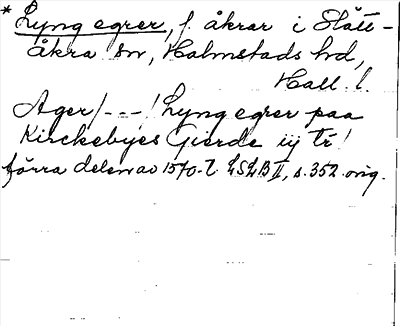 * Lyng egrer, f. åkrar i Slätt-
åkra sn, Halmstads hd,
Hall. l.
Ager/---/Lyng egrer paa
Kirckebyes Gierde iij tr!
förra delen av 1570-t. LSLB II, s. 352. orig.